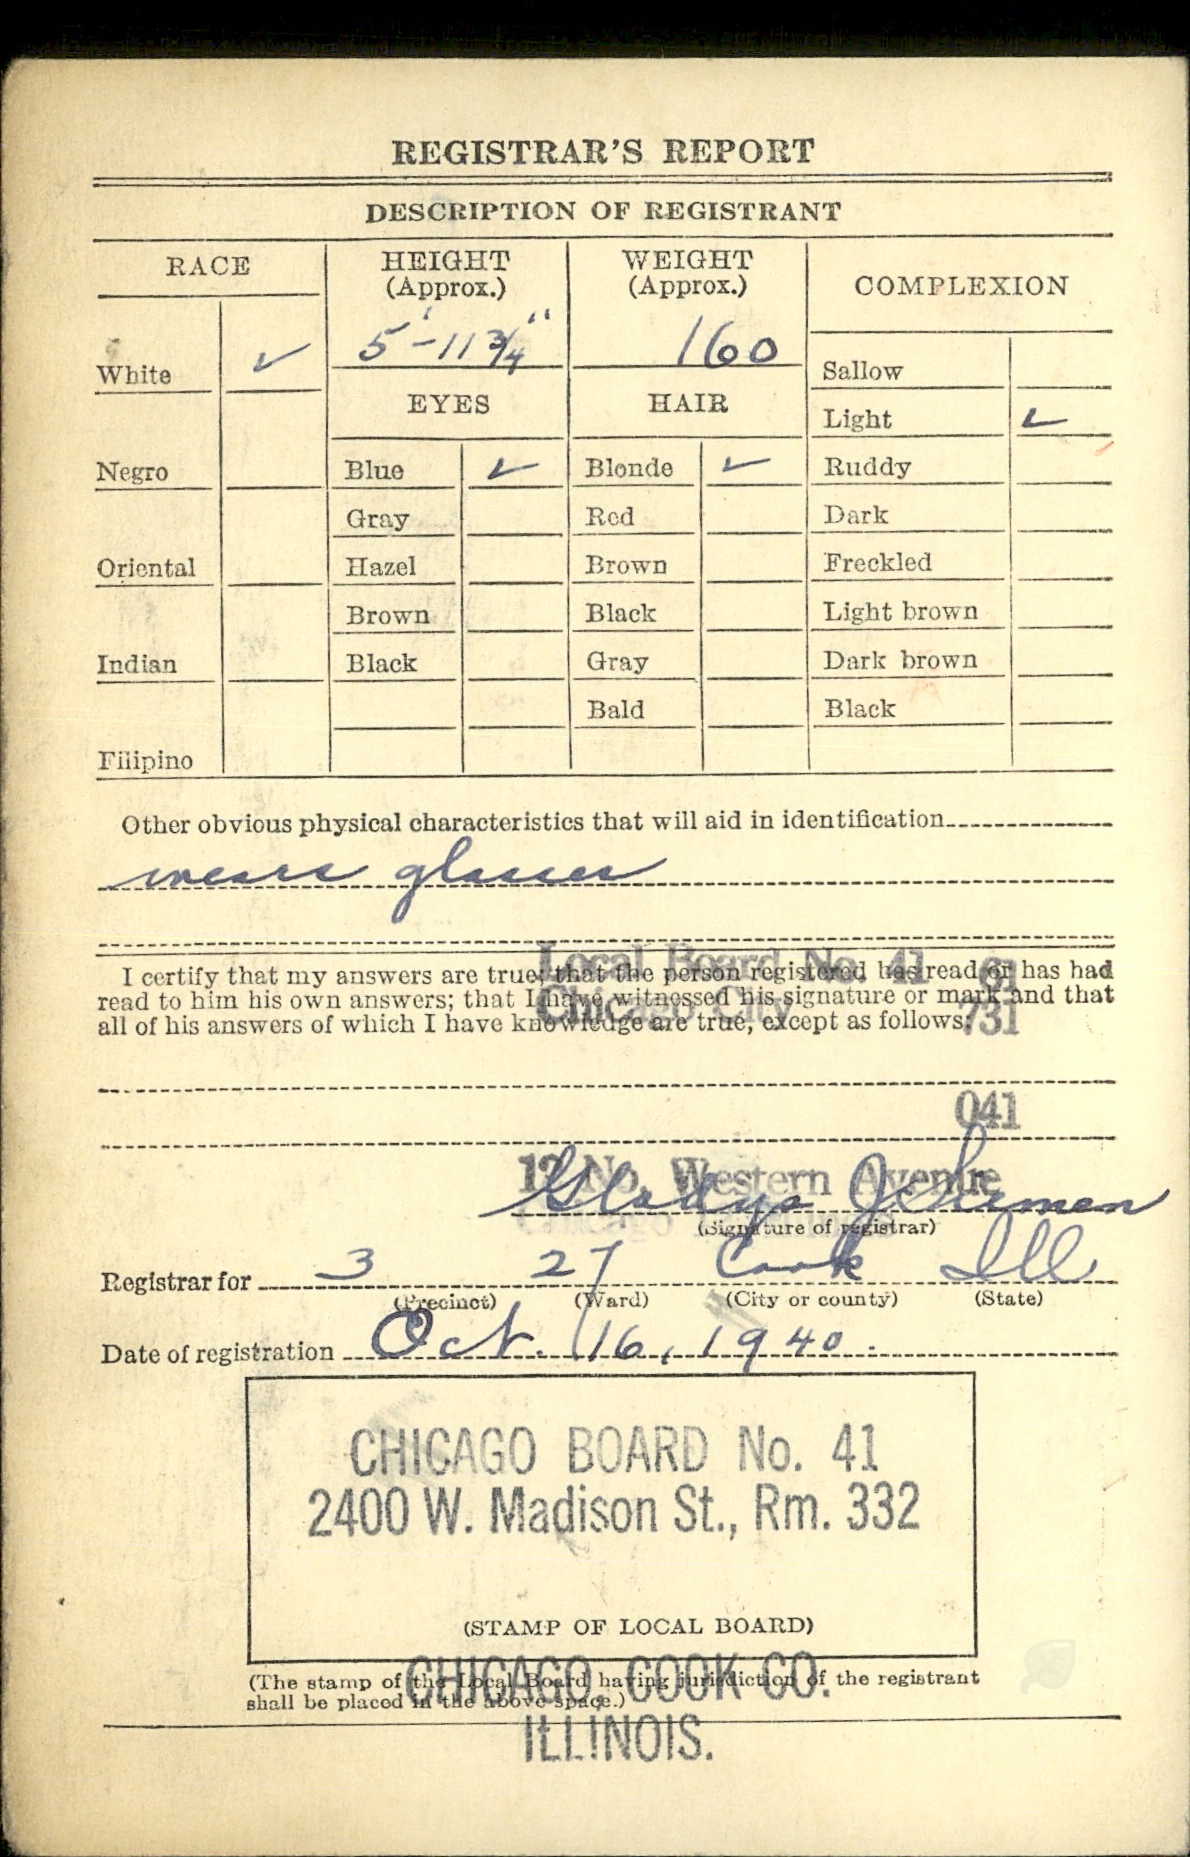 REGISTRAR'S REPORT
DESCRIPTION OF REGISTRANT
RACE
HEIGHT
(Approx.)
WEIGHT
(Approx.)
COMPLEXION
5'-11 3/4"
160
White ✓
Sallow
EYES
HAIR
Light ✓
Negro
Blue ✓
Blonde ✓
Ruddy
Gray
Red
Dark
Oriental
Hazel
Brown
Freckled
Brown
Black
Light brown
Indian
Black
Gray
Dark brown
Bald
Black
Filipino
Other obvious physical characteristics that will aid in identification
wears glasses
Local Board No. 41 61
I certify that my answers are true; that the person registered has read or has had
read to him his own answers; that I have witnessed his signature or mark and that
Chicago City
all of his answers of which I have knowledge are true, except as follows:
731
041
12 No. Western Avenue
Gladys
(Signature of registrar)
Chicago
Registrar for 3 27 Cook Ill
(Precinct) (Ward) (City or county) (State)
Date of registration Oct. 16, 1940.
CHICAGO BOARD No. 41
2400 W. Madison St., Rm. 332
(STAMP OF LOCAL BOARD)
(The stamp of the Local Board having jurisdiction of the registrant
shall be placed in the above space.)
CHICAGO, COOK CO.
ILLINOIS.